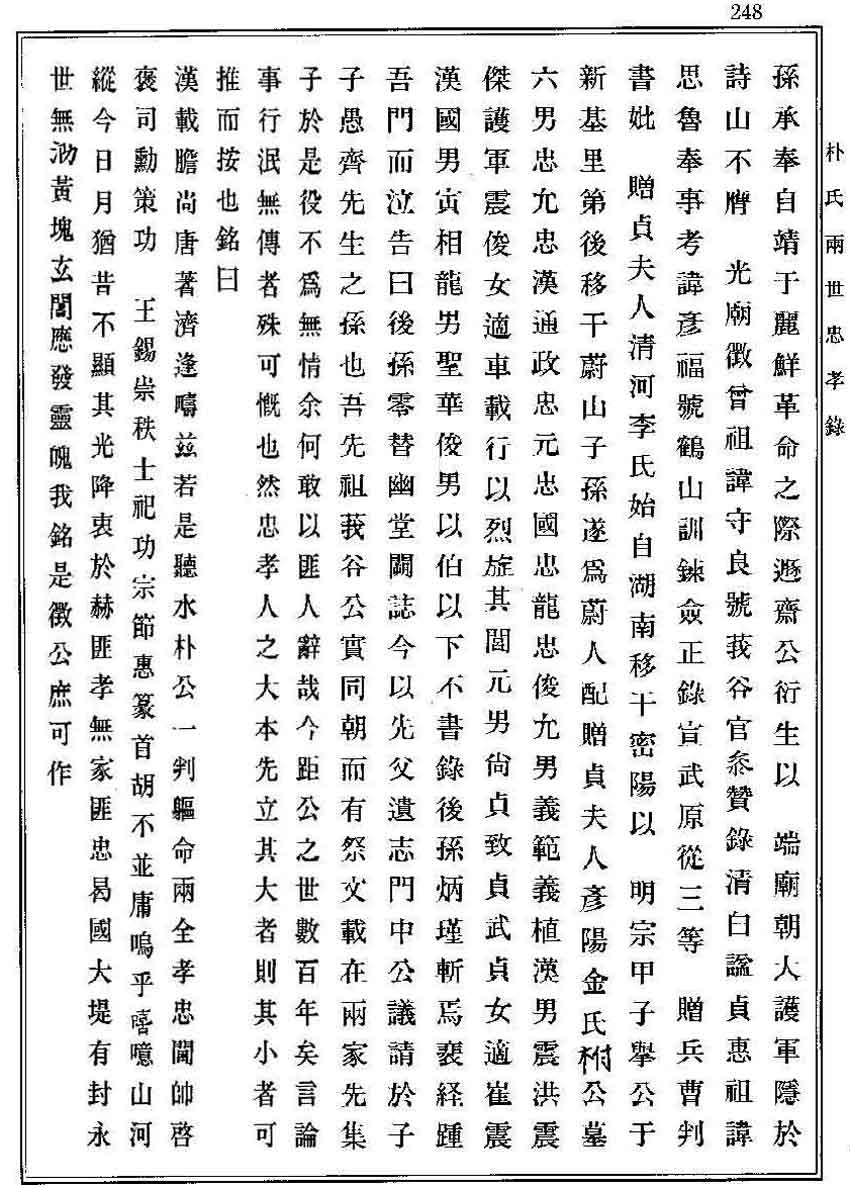 248
朴氏兩世忠孝錄
孫承奉自靖于麗鮮革命之際遯齋公衍生以 端廟朝大護軍隱於
詩山不膺 光廟徵曾祖諱守良號莪谷官叅贊錄淸白諡貞惠祖諱
思魯奉事考諱彥福號鶴山訓鍊僉正錄宣武原從三等 贈兵曹判
書妣 贈貞夫人淸河李氏始自湖南移于密陽以 明宗甲子擧公于
新基里第後移于蔚山子孫遂爲蔚人配贈貞夫人彥陽金氏祔公墓
六男忠允忠漢通政忠元忠國忠龍忠俊允男義範義植漢男震洪震
傑護軍震俊女適車載行以烈旌其閭元男尙貞致貞武貞女適崔震
漢國男寅相龍男聖華俊男以伯以下不書錄後孫炳瑾斬焉衰絰踵
吾門而泣告曰後孫零替幽堂闕誌今以先父遺志門中公議請於子
子愚齊先生之孫也吾先祖莪谷公實同朝而有祭文載在兩家先集
子於是役不爲無情余何敢以匪人辭哉今距公之世數百年矣言論
事行泯無傳者殊可慨也然忠孝人之大本先立其大者則其小者可
推而按也銘曰
漢載膽尙唐著濟逢疇玆若是聽水朴公一判軀命兩全孝忠閫帥啓
褒司勳策功 王錫崇秩士祀功宗節惠篆首胡不並庸嗚乎嘻噫山河
縱今日月猶昔不顯其光降衷於赫匪孝無家匪忠曷國大堤有封永
世無泐黃塊玄閭應發靈魄我銘是徵公庶可作